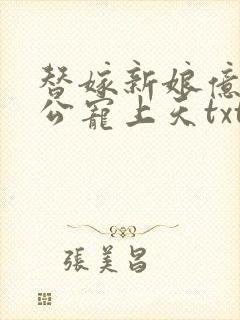 替嫁新娘億
公寵上天txt
張美昌